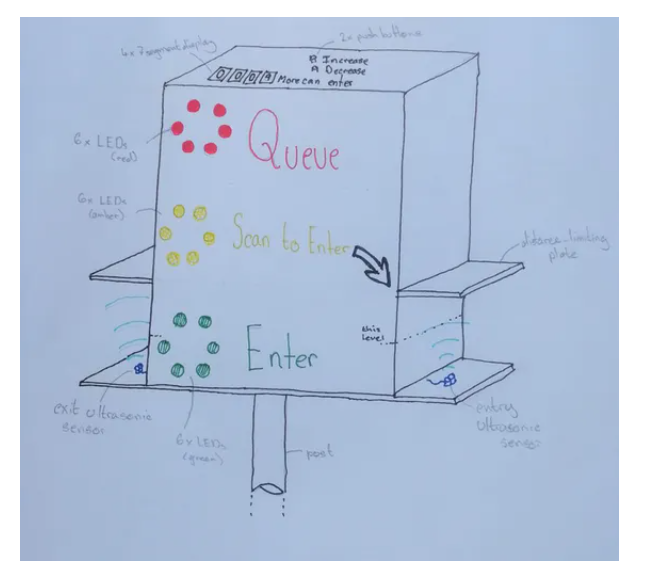 4x 7 segment display
2x push buttons
B Increase
A Decrease
0004 More can enter
6x LEDs
(red)
Queue
6x LEDs
(amber)
Scan to Enter
distance-limiting
plate
this
level
Enter
exit ultrasonic
sensor
6x LEDs
(green)
post
entry
ultrasonic
sensor